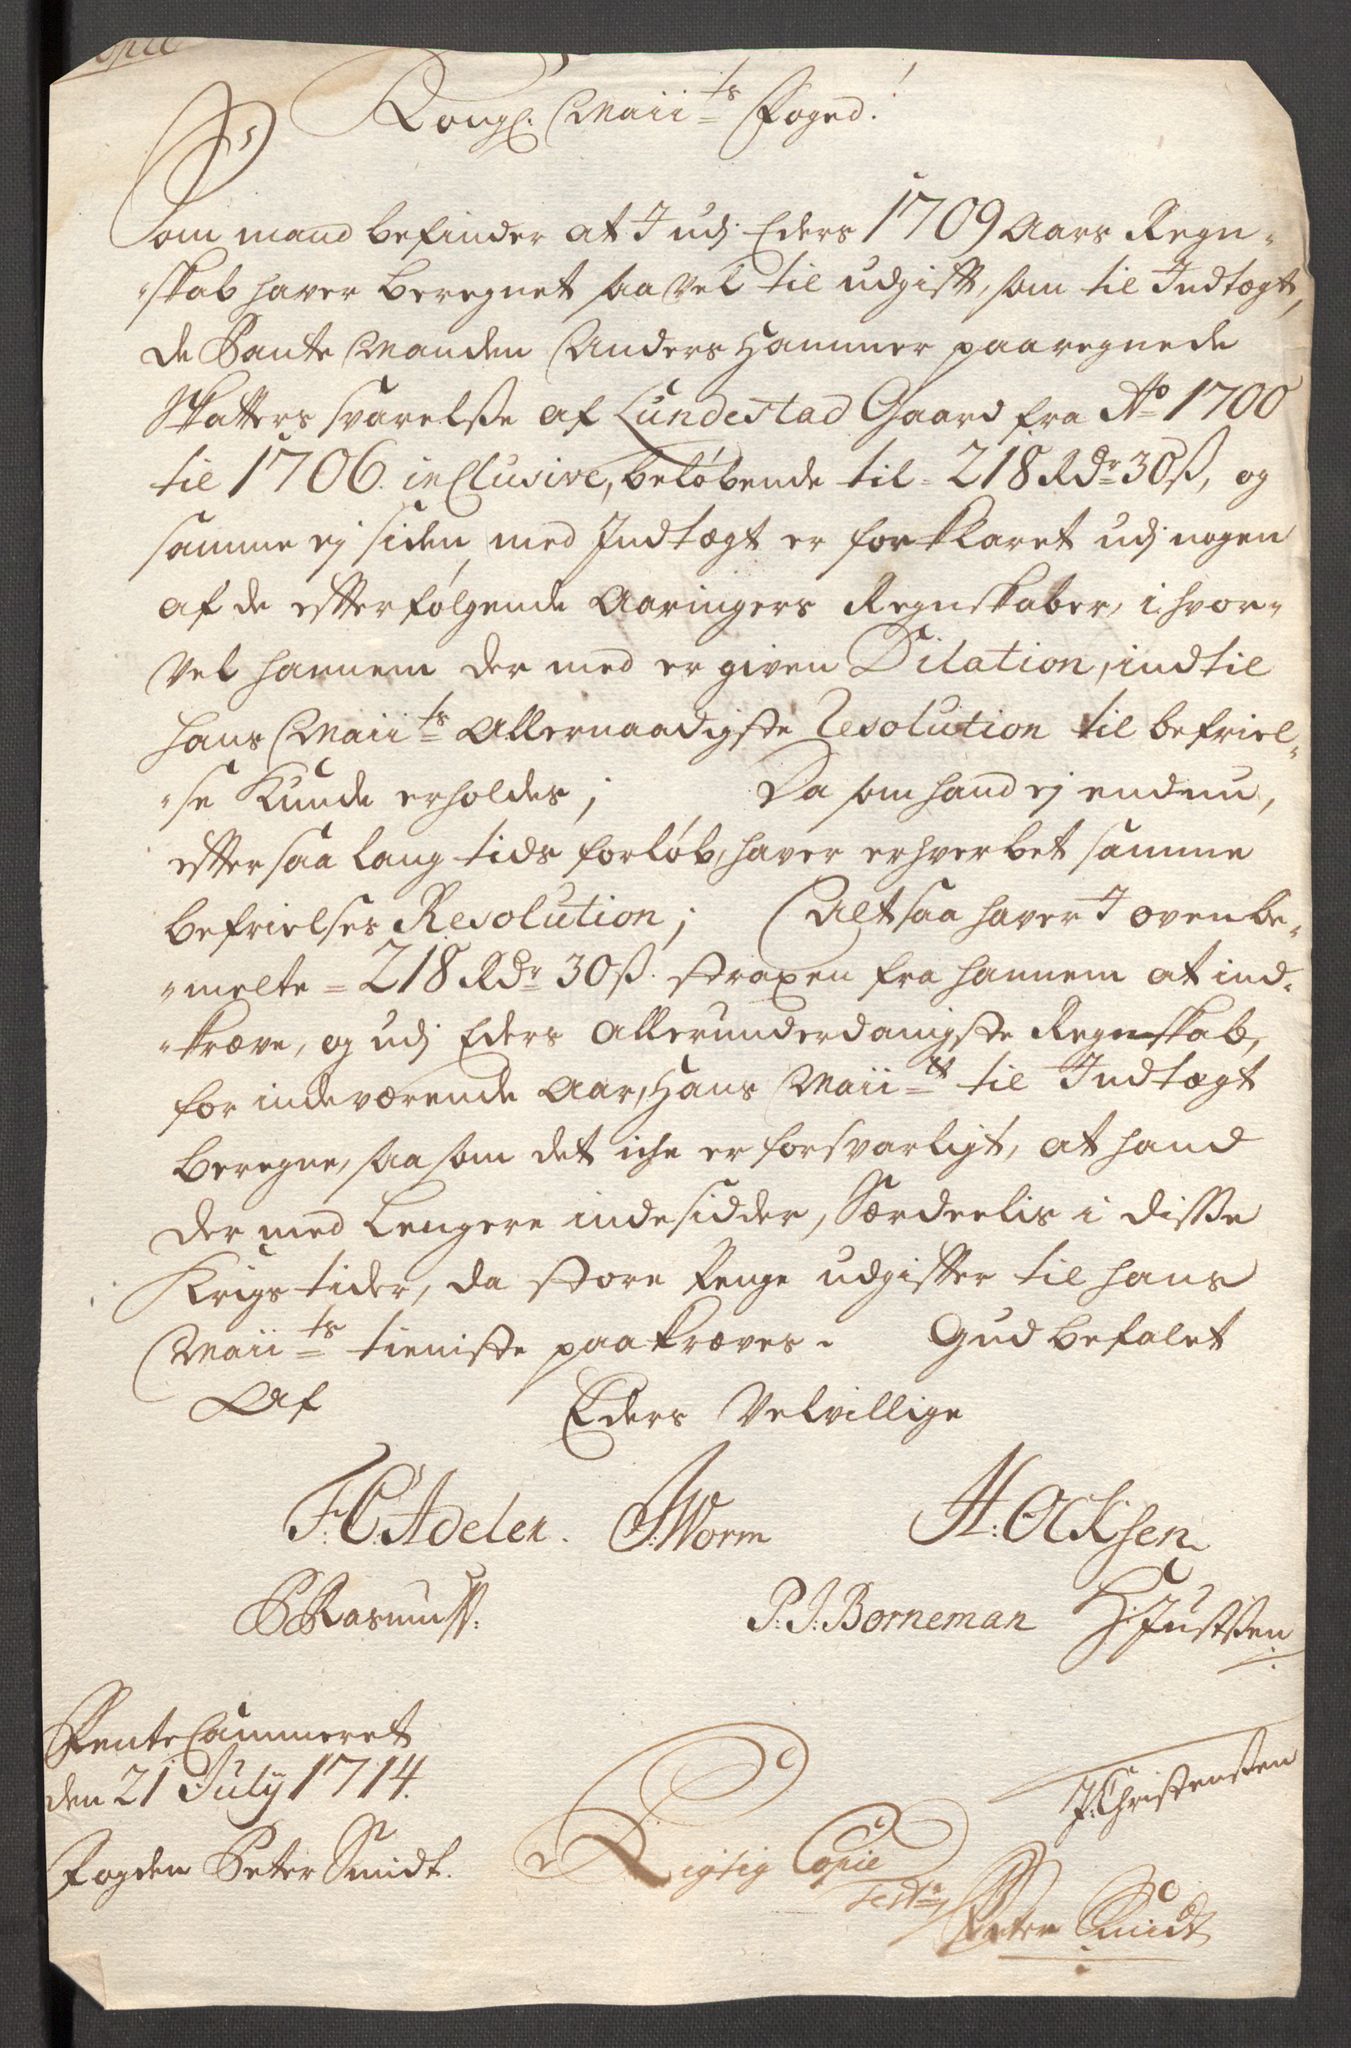 Copie
Kongl. Maii ts Foged!
Som mand befinder at I udj Eders 1709 Aars Regn-
-skab haver beregnet saavel til udgift, som til Indtægt,
de Pante Manden Anders Hammer paaregnede
Skatters svarelse af Lundestad Gaard fra Ao 1700
til 1706. inclusive, beløbende til = 218 Rdr 30 ß, og
samme ej siden med Indtægt er forklaret udj nogen
af de efterfølgende Aaringers Regnskaber, ihvor-
vel hannem der med er given Dilation, indtil
hans Maii ts Allernaadigste Resolution til befriel-
-se kunde erholdes; Da som hand ej endnu,
efter saa lang tids forløb, haver erhverbet samme
befrielses Resolution; Altsaa haver I ovenbe-
-melte = 218 Rdr 30 ß. straxen fra hannem at ind-
-kræve, og udj Eders Allerunderdanigste Regnskab,
for indeværende Aar, Hans Maii tt til Indtægt
beregne, saasom det iche er forsvarligt, at hand
der med lengere indesidder, Særdeelis i disse
Krigs tider, da store Penge udgifter til hans
Maii ts tieniste paakræves. Gud befalet
Af Eders Velvillige
F. C. Adeler. J Worm A: Ocksen
P Rasmuss: P: J: Borneman H: Justsen
Rente Cammeret
den 21 July 1714.
J: Christensen
Fogden Peter Smidt.
Rigtig Copie
Test:
Peter Smidt